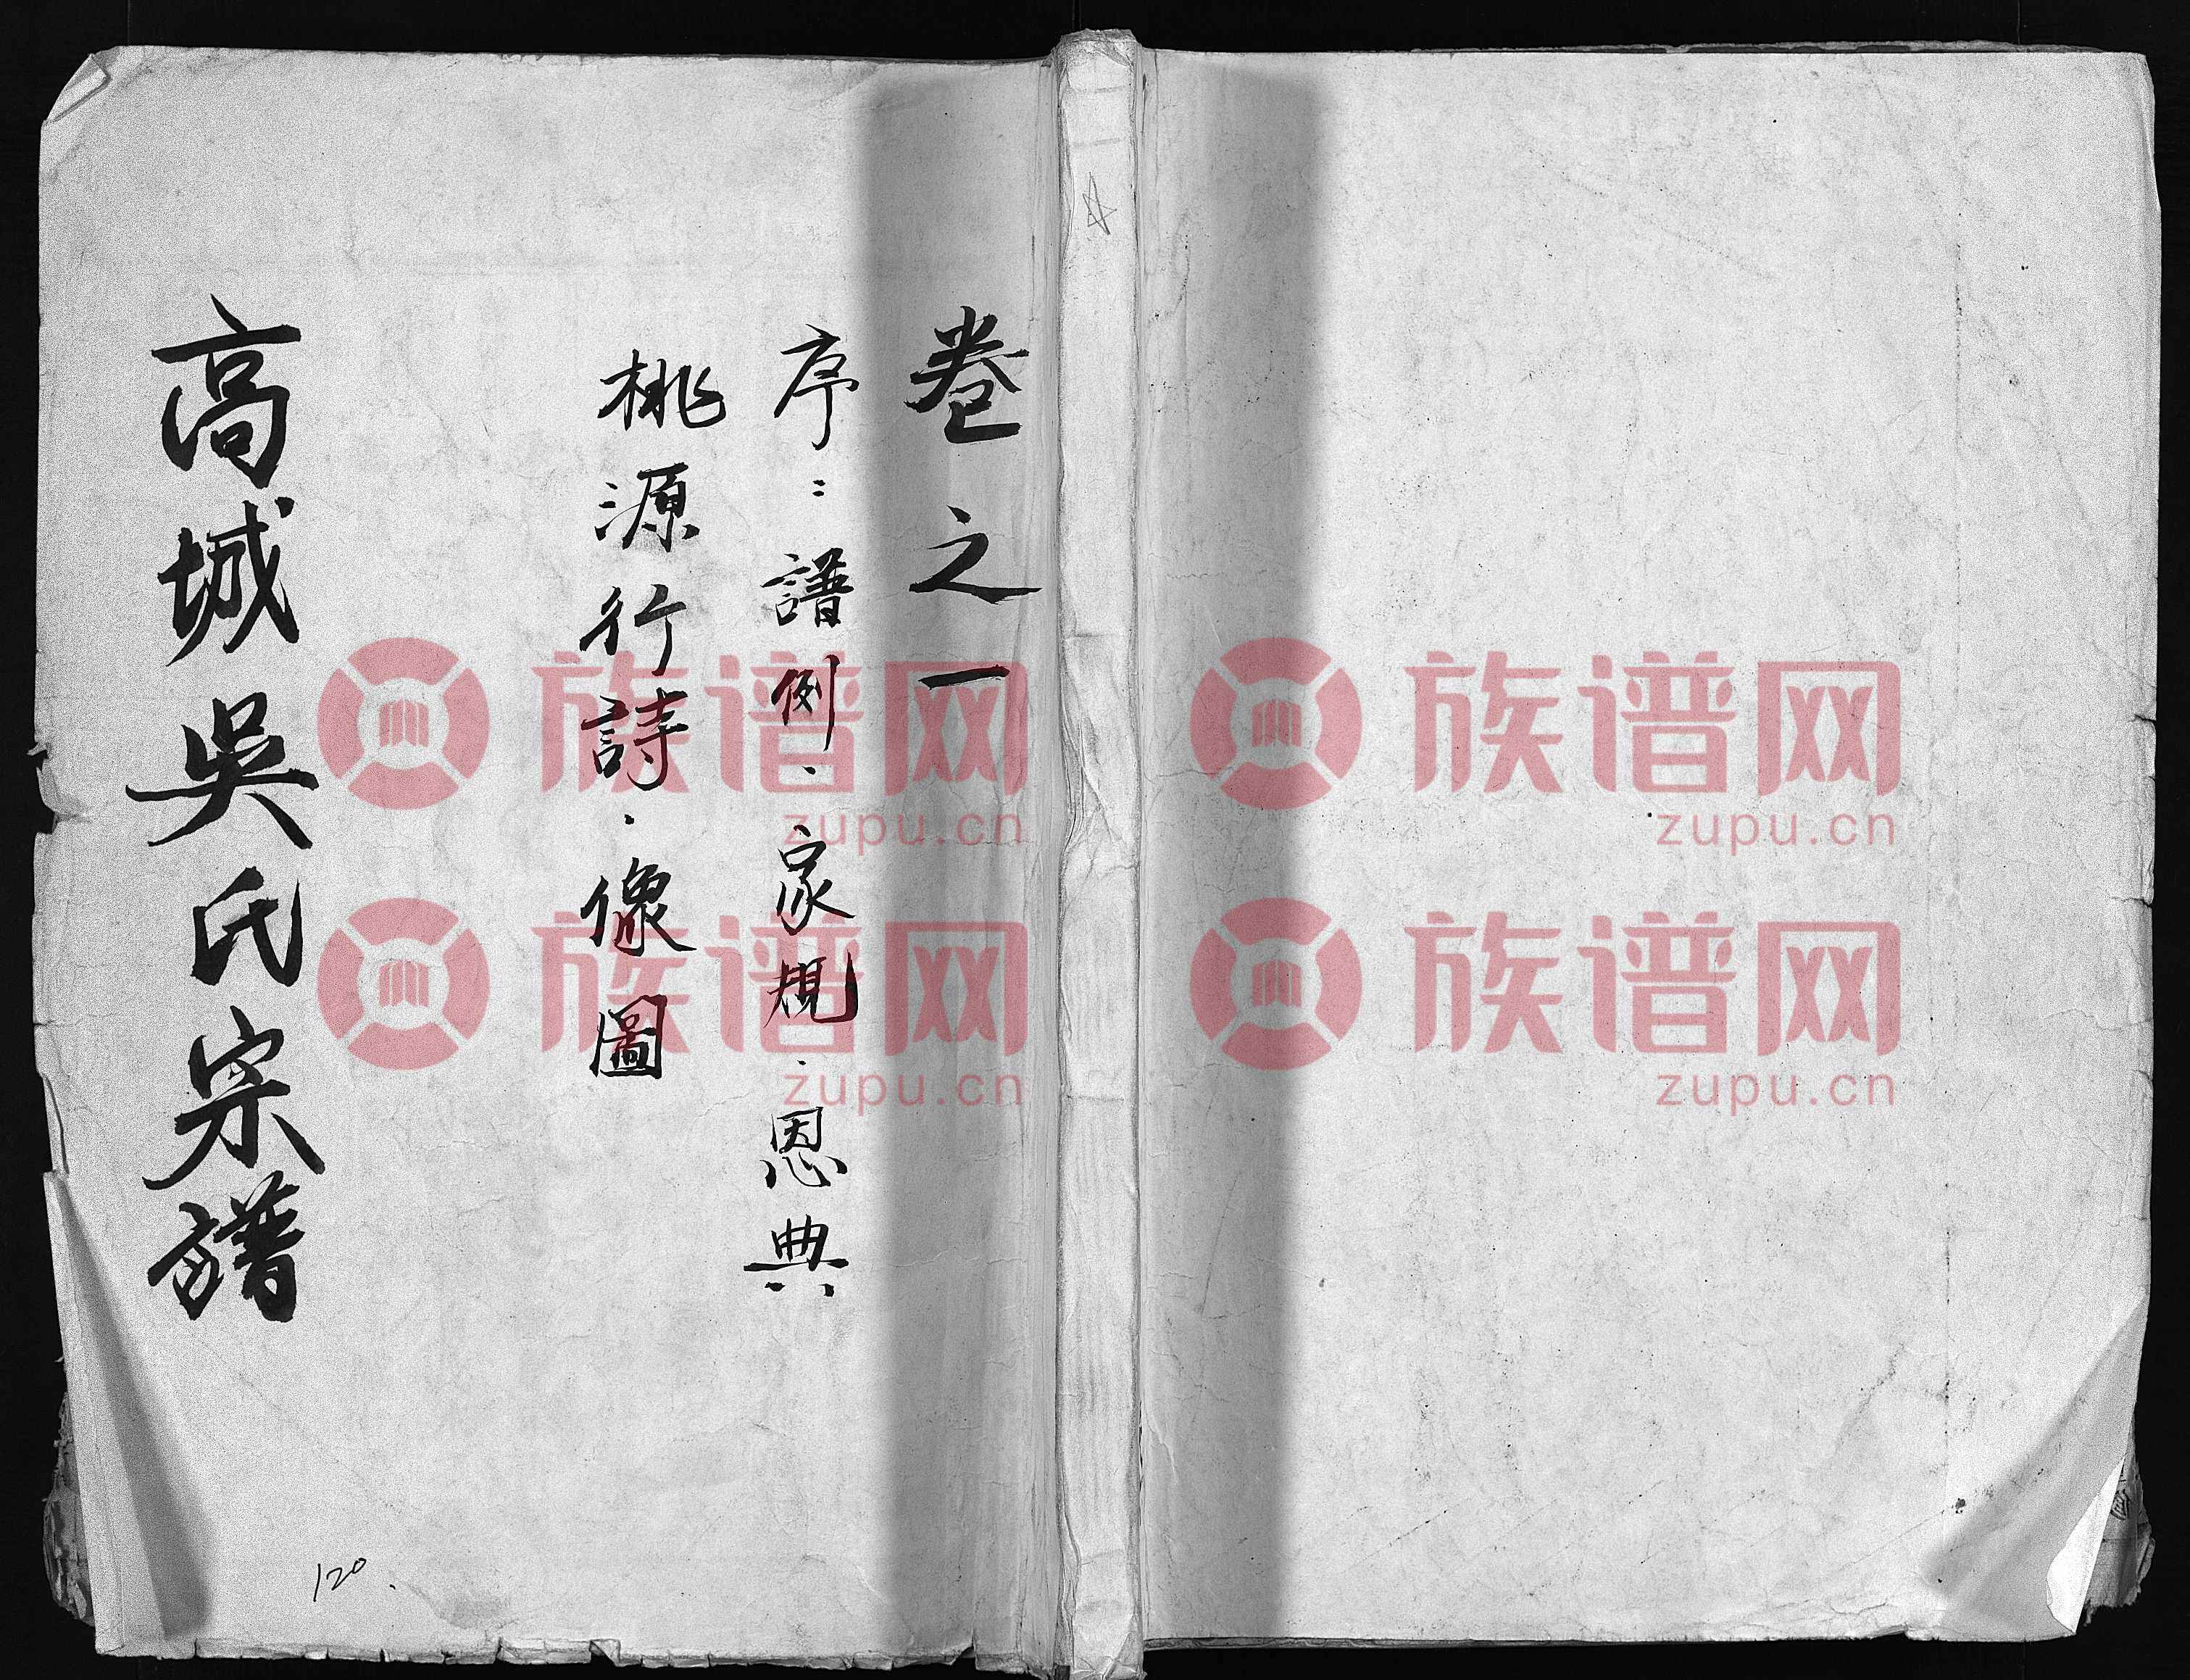 卷之一
序：譜例．家規．恩典
桃源行詩．像圖
高城吳氏宗譜
120
族谱网
zupu.cn
族谱网
zupu.cn
族谱网
zupu.cn
族谱网
zupu.cn